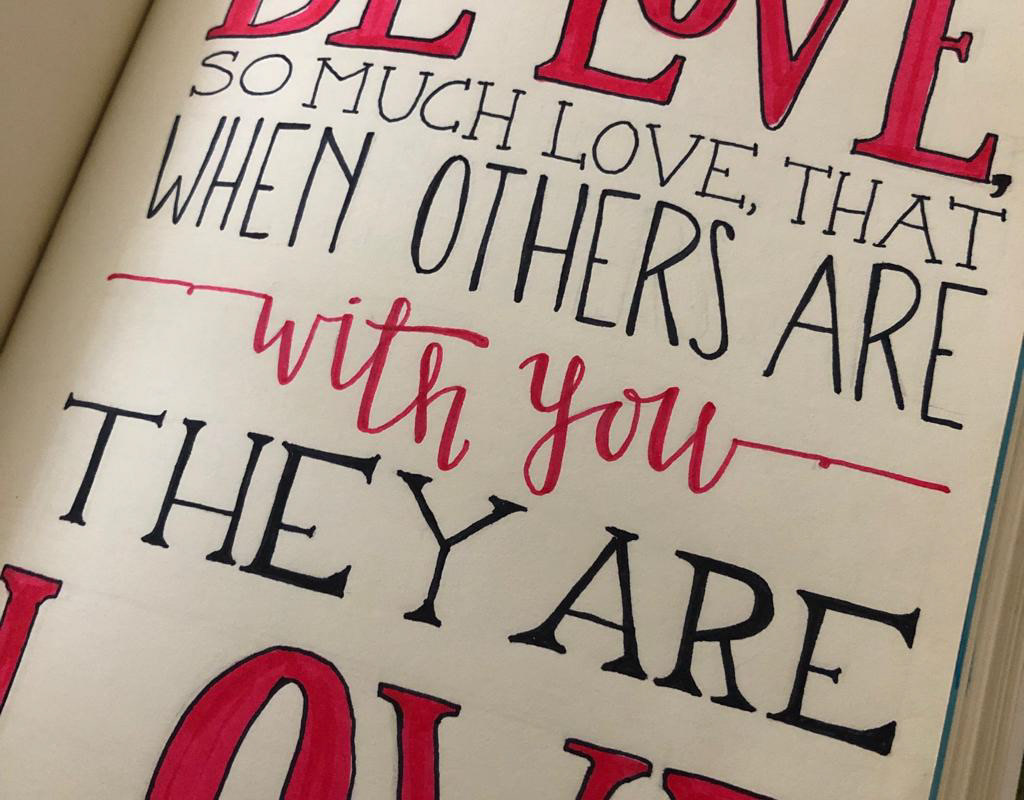 BE LOVE,
SO MUCH LOVE, THAT
WHEN OTHERS ARE
with you
THEY ARE
LOVE